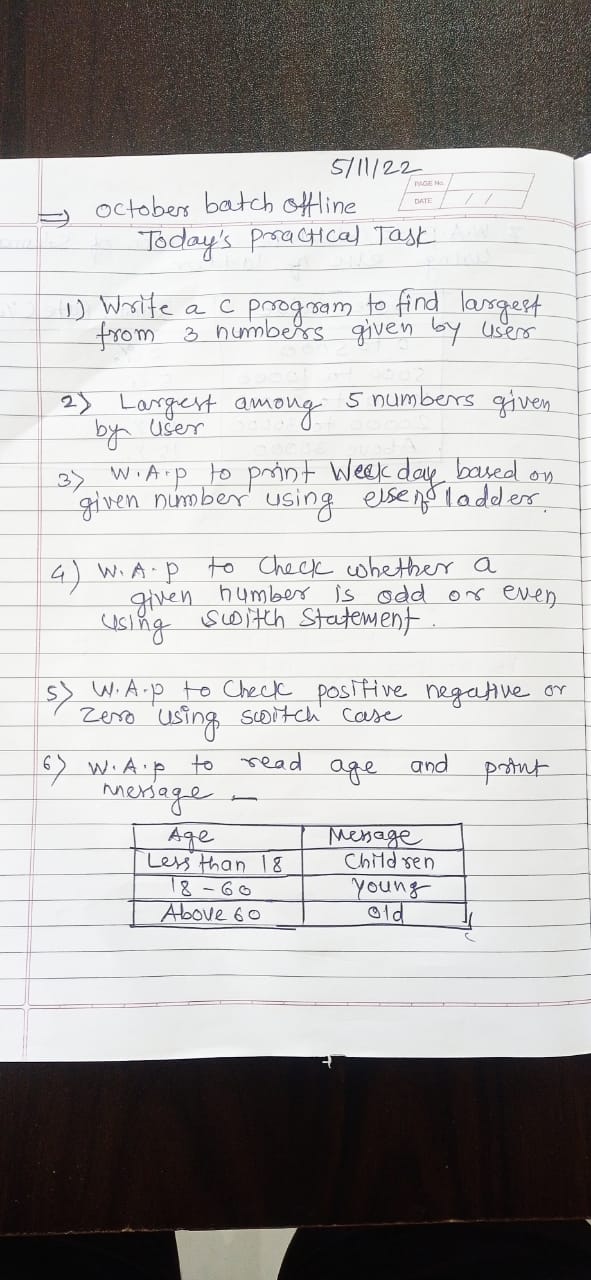 5/11/22
PAGE No.
DATE / /
⇒ October batch offline
Today's Practical Task
1) Write a C program to find largest
from 3 numbers given by user
2) Largest among 5 numbers given
by user
3) W.A.P to print Week day based on
given number using else if ladder.
4) W.A.P to Check whether a
given number is odd or even
using switch Statement.
5) W.A.P to Check positive negative or
Zero using switch case
6) W.A.P to read age and print
message –
Age Message
Less than 18 Children
18 - 60 Young
Above 60 Old